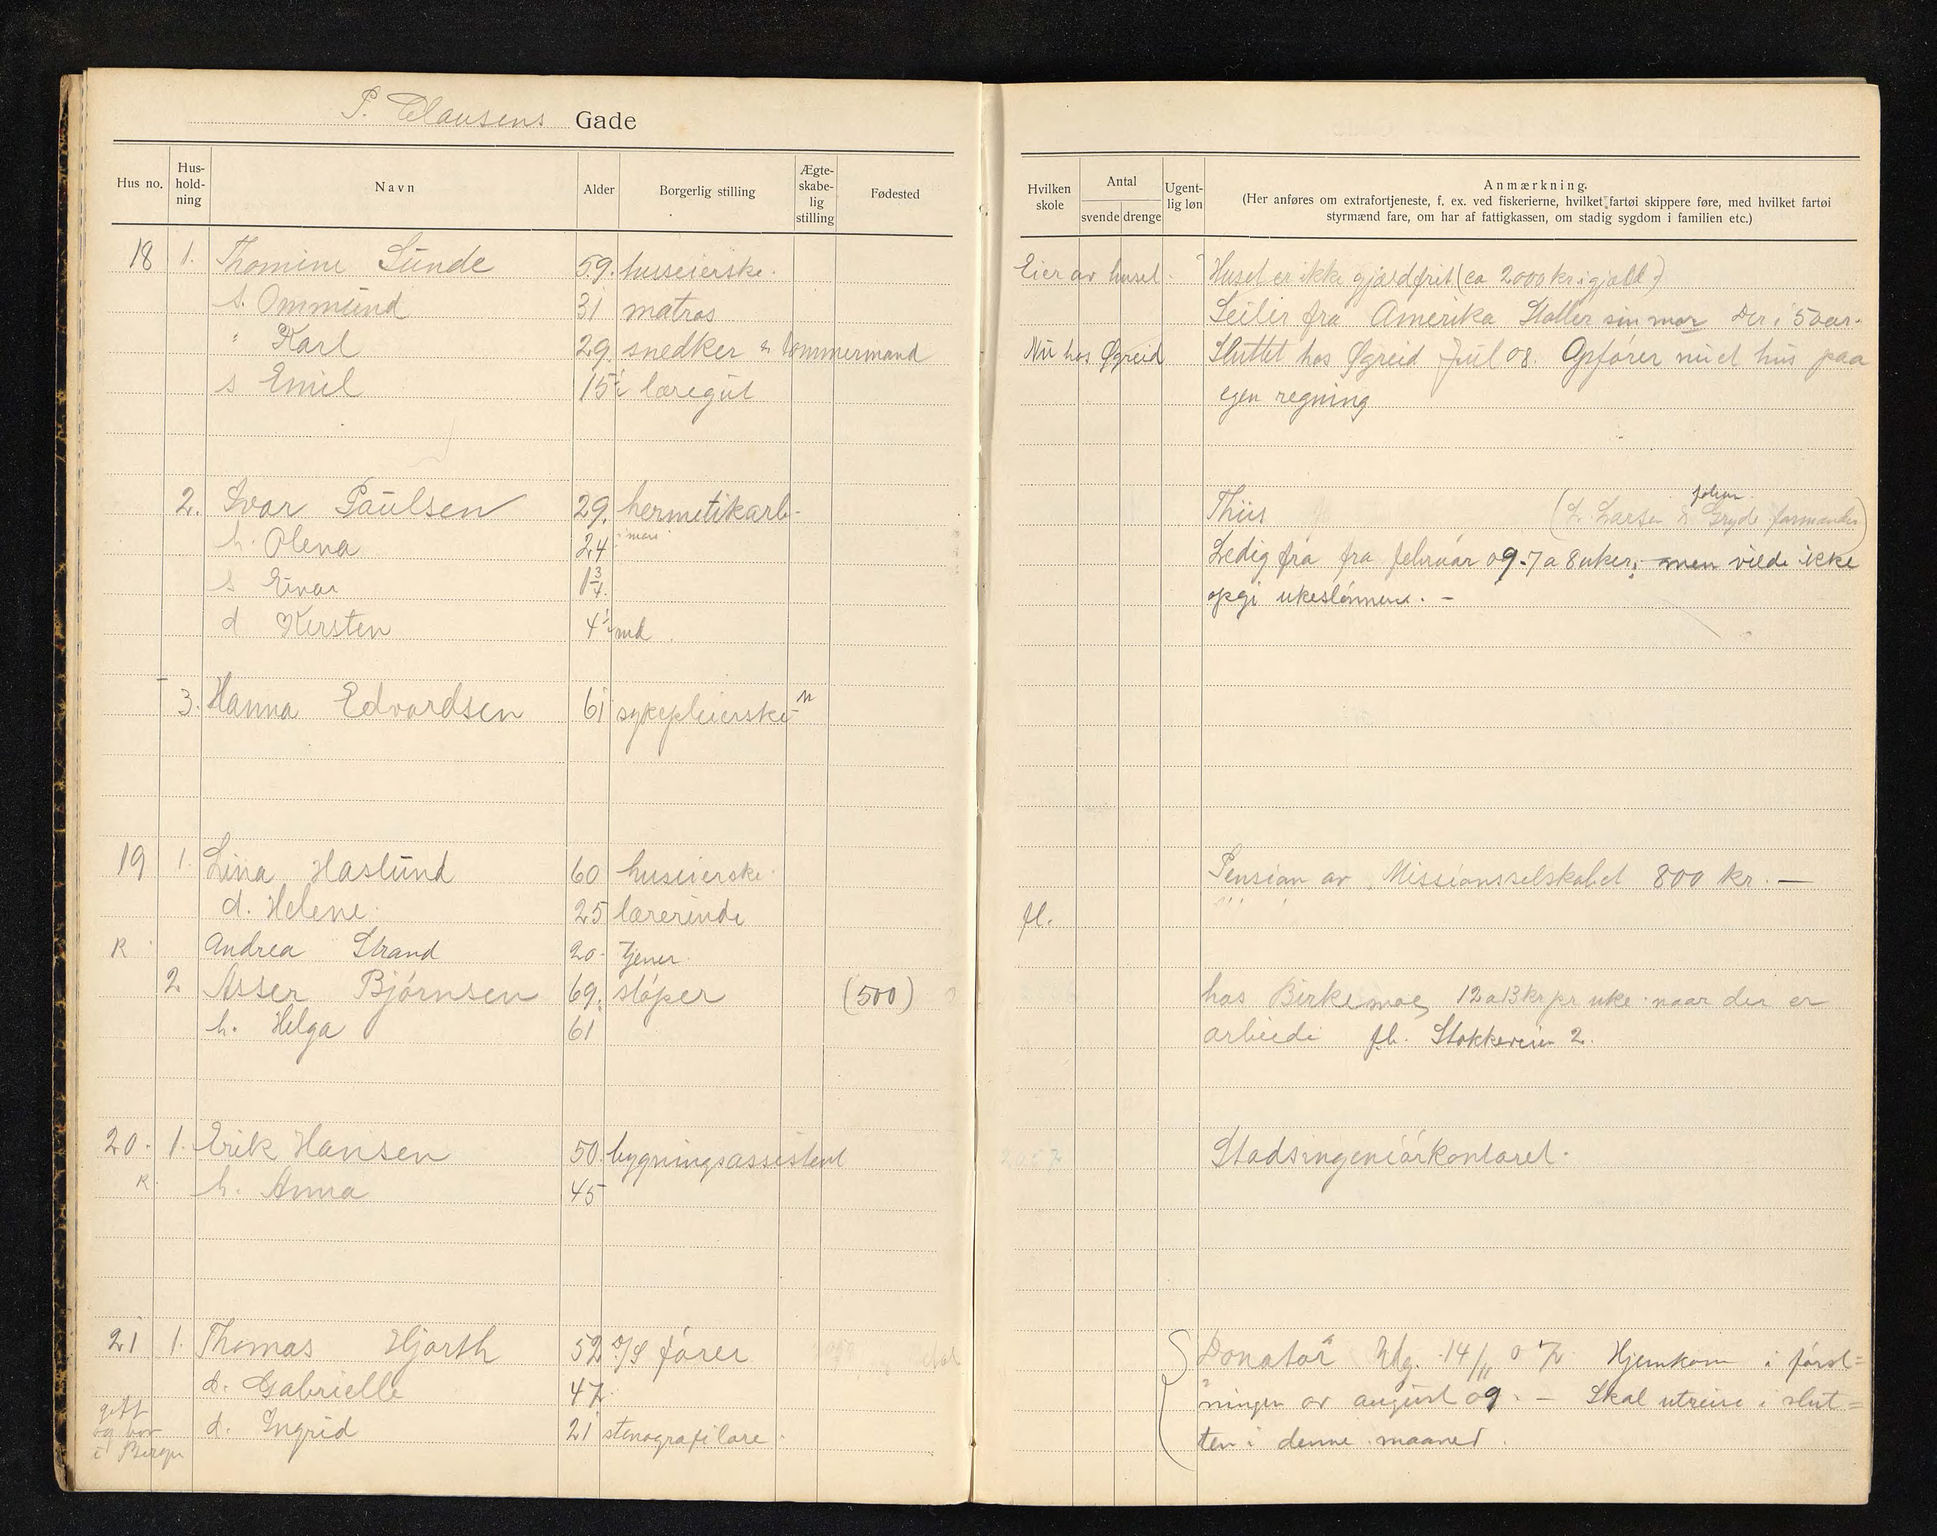 P. Clausens Gade
Hus no. Hus-hold-ning Navn Alder Borgerlig stilling Ægte-skabe-lig stilling Fødested
18 1. Thomine Sunde 59. huseierske.
s. Ommund 31 matros
" Karl 29. snedker & tømmermand
s Emil 15 i læregut
2. Ivar Paulsen 29. hermetikarb-
h. Olena 24
s Einar 1 3/4
d Kirsten 4 1/2 md.
3. Hanna Edvardsen 61 sykepleierske
19 1. Lina Haslund 60 huseierske.
d. Helene. 25 lærerinde
R. Andrea Strand 20. tjener.
2. Asser Bjørnsen 69. støper (500)
h. Helga 61
20. 1. Erik Hansen 50. bygningsassistent
R. h. Anna 45
21 1. Thomas Hjorth 52 D/S fører
d. Gabrielle 47.
gift og bor i Bergen d. Ingrid 21 stenografilære.
Hvilken skole Antal svende drenge Ugent-lig løn Anmærkning.
(Her anføres om extrafortjeneste, f. ex. ved fiskerierne, hvilket fartøi skippere føre, med hvilket fartøi
styrmænd fare, om har af fattigkassen, om stadig sygdom i familien etc.)
Eier av huset. Huset er ikke gjældfrit (ca 2000 kr. i gjæld.)
Seiler fra Amerika Støtter sin mor Der i 5 aar.
Nu hos Øgreid Sluttet hos Øgreid Jul 08. Opfører nu et hus paa
egen regning
Thiis (L. Larsen & Gryde formænder)
Ledig fra fra februar 09. 7 a 8 uker; men vilde ikke
opgi ukelønnene. -
Pension av Missionsselskabet 800 kr. -
fl.
hos Birkemoe, 12 a 13 kr pr uke naar der er
arbeide fl. Stokkeveien 2.
Stadsingeniørkontoret.
Donator Utg. 14/11 07. Hjemkom i først=
ningen av august 09. - Skal utreise i slut=
ten i denne maaned.